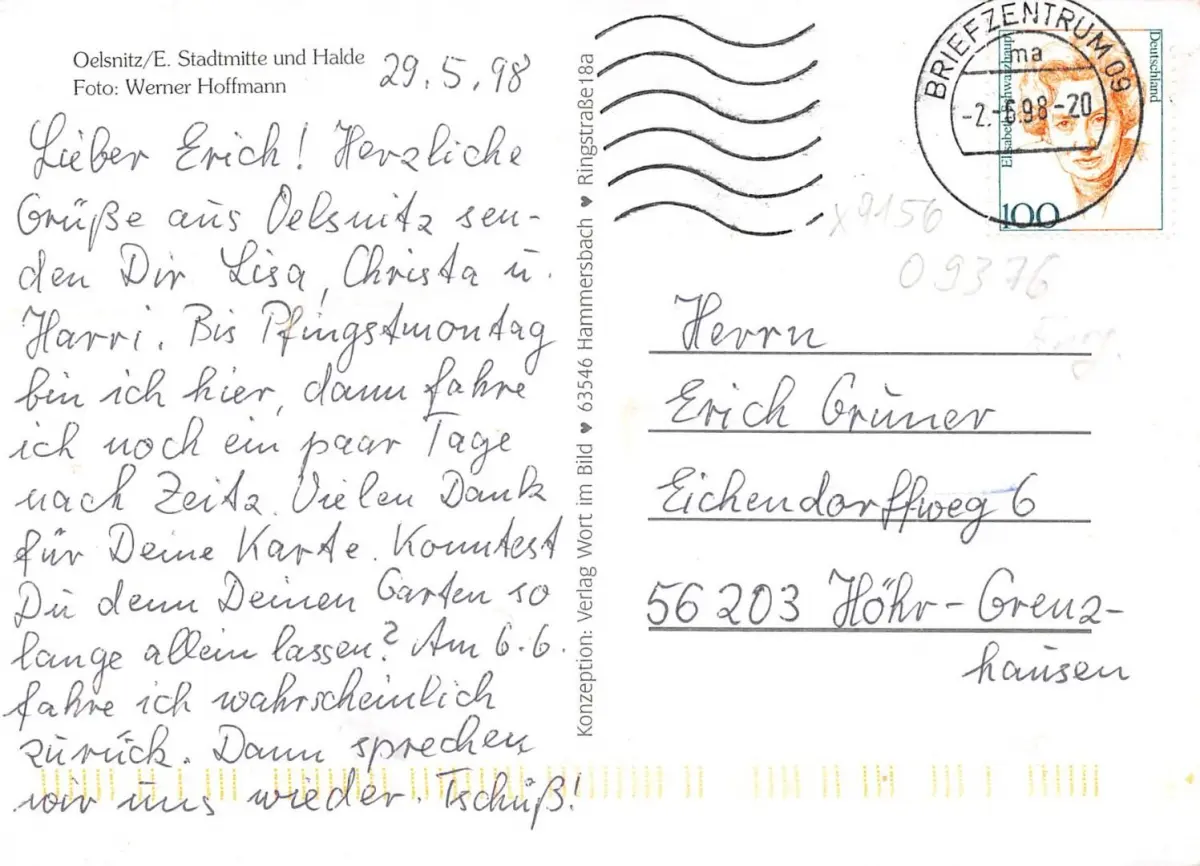 Oelsnitz/E. Stadtmitte und Halde
Foto: Werner Hoffmann
29.5.98
Lieber Erich! Herzliche
Grüße aus Oelsnitz sen-
den Dir Lisa, Christa u.
Harri. Bis Pfingstmontag
bin ich hier, dann fahre
ich noch ein paar Tage
nach Zeitz. Vielen Dank
für Deine Karte. Konntest
Du denn Deinen Garten so
lange allein lassen? Am 6.6.
fahre ich wahrscheinlich
zurück. Dann sprechen
wir uns wieder. Tschüß!
Konzeption: Verlag Wort im Bild ♥ 63546 Hammersbach ♥ Ringstraße 18a
BRIEFZENTRUM 09
ma
-2.-6.98-20
Deutschland
Elisabeth Schwarzhaupt
100
x 9156
09376
Herrn
Erich Grüner
Eichendorffweg 6
56203 Höhr-Grenz-
hausen